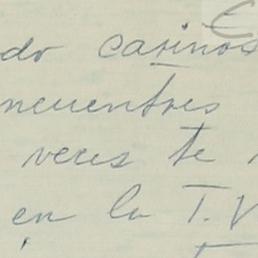 do cariños
ncuentres
veces te
en la T.V